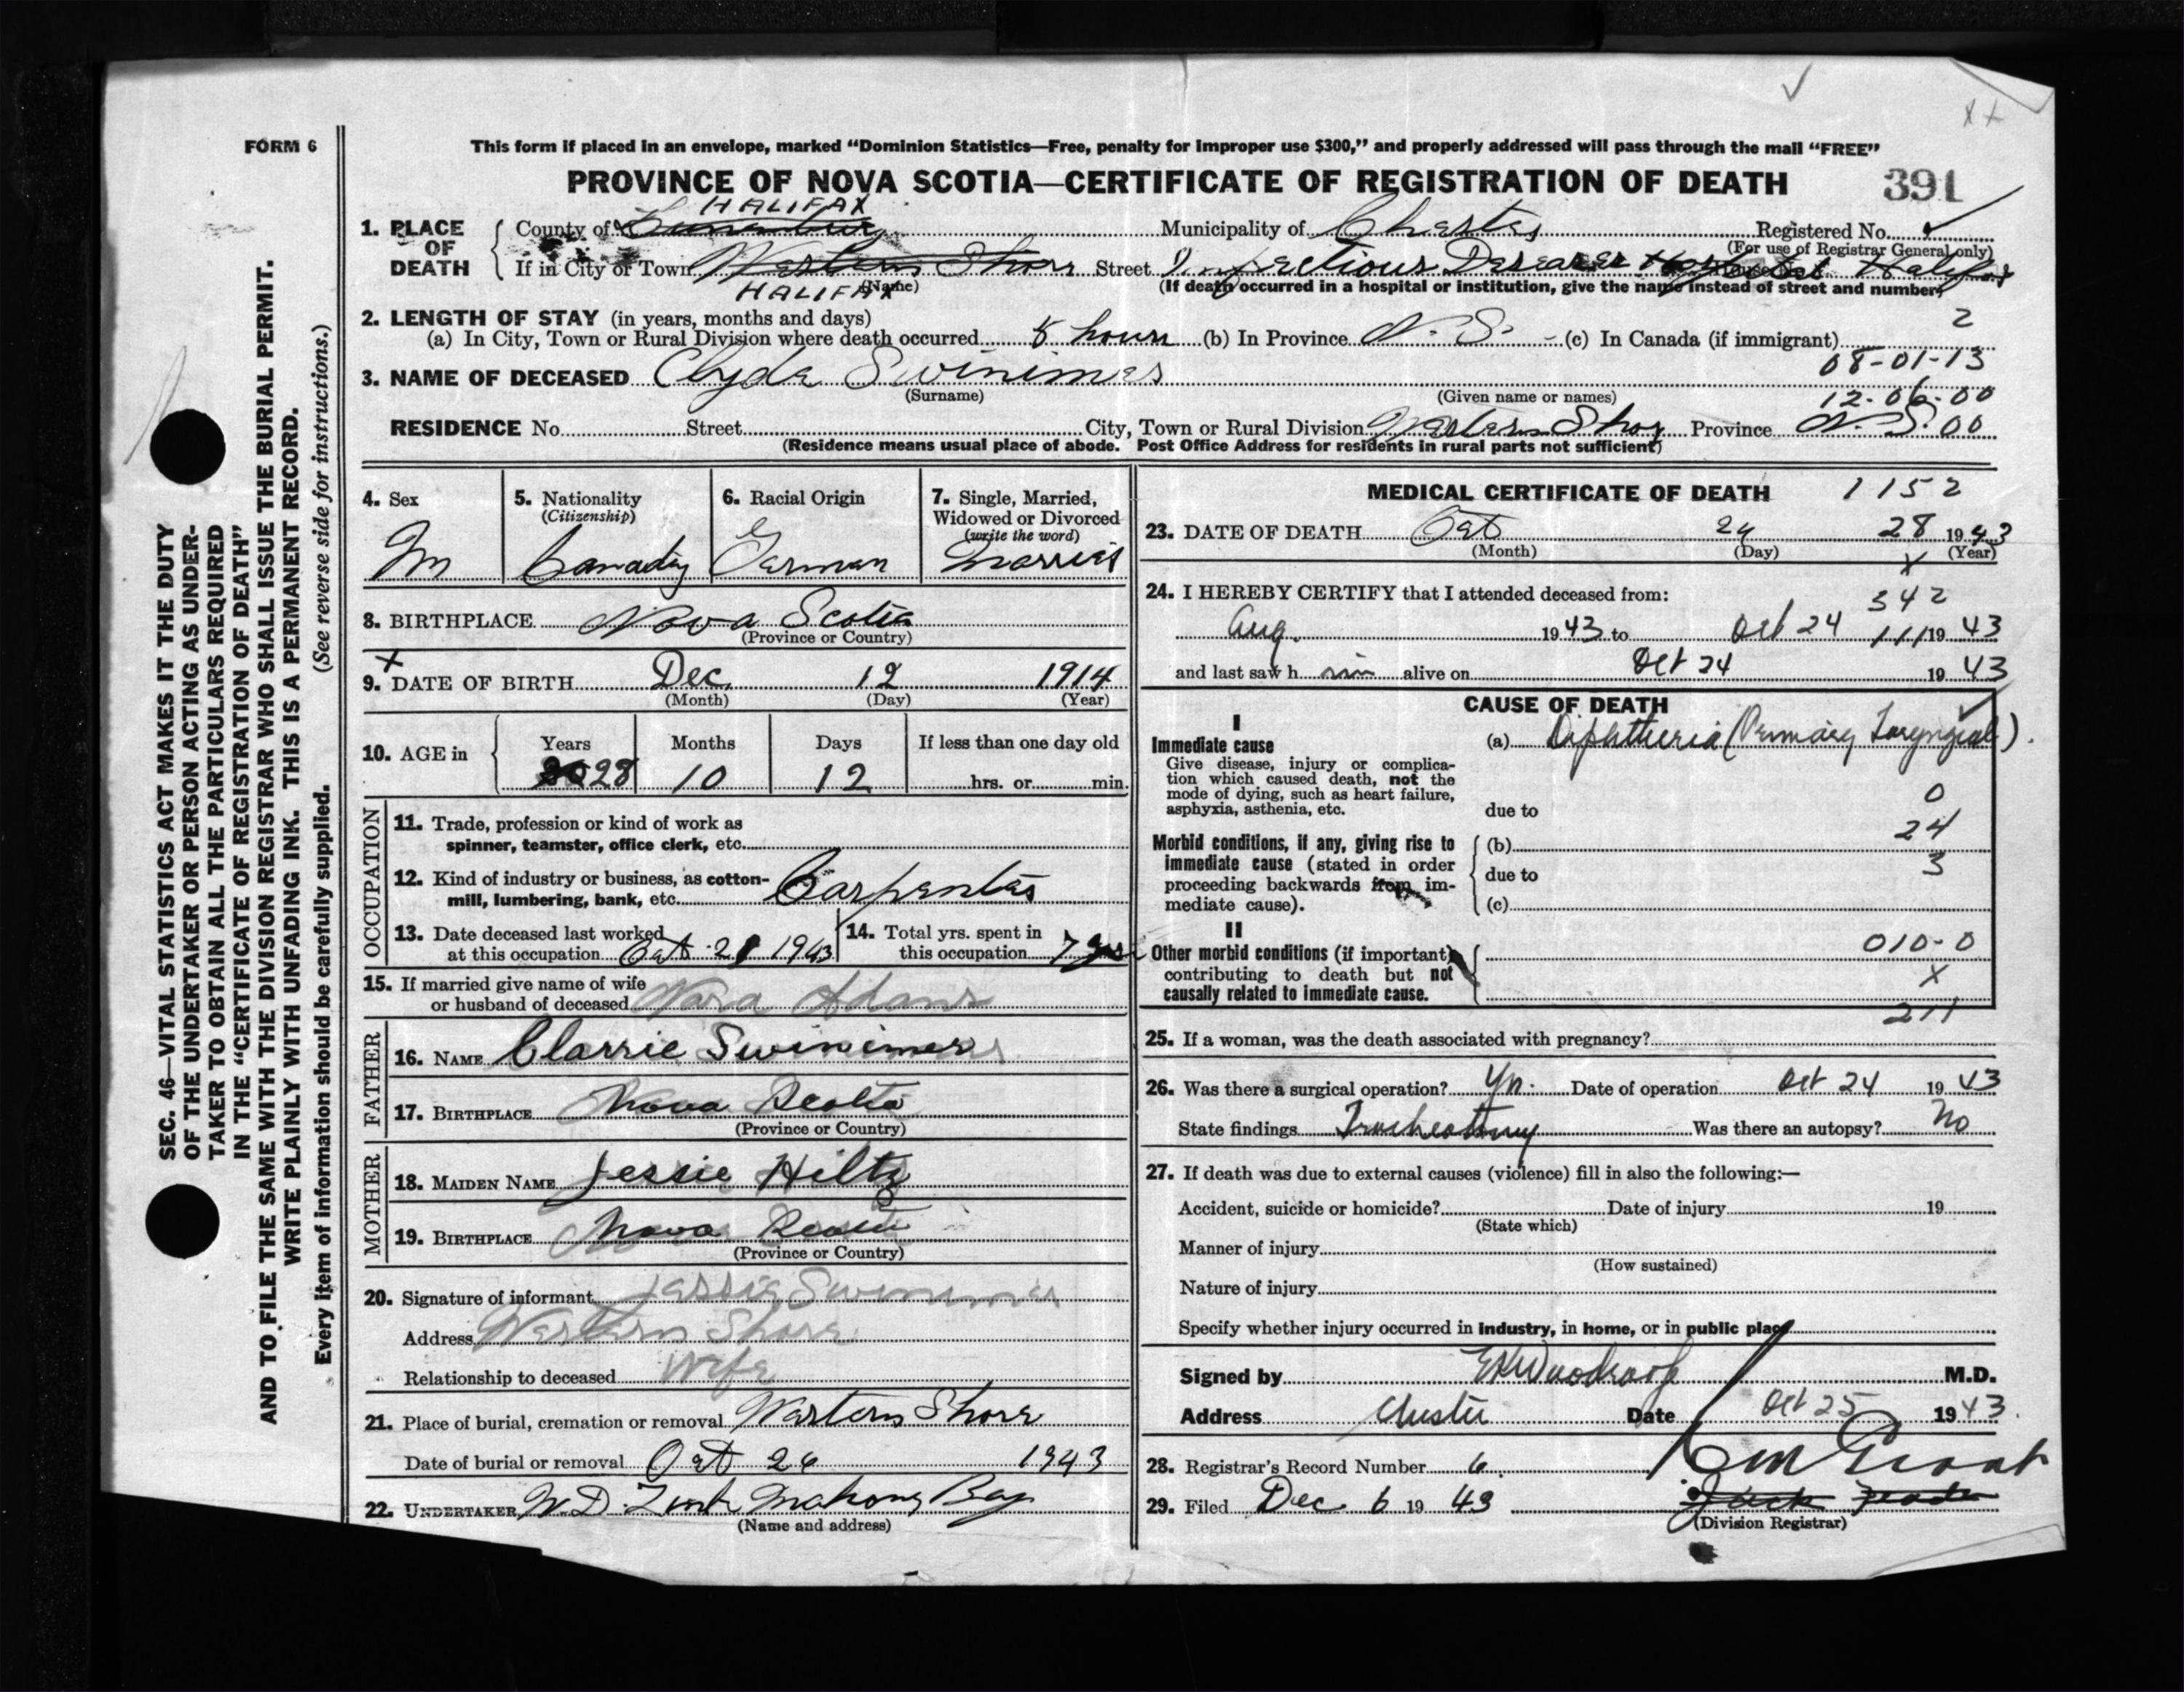 FORM 6
This form if placed in an envelope, marked "Dominion Statistics—Free, penalty for improper use $300," and properly addressed will pass through the mail "FREE"
PROVINCE OF NOVA SCOTIA—CERTIFICATE OF REGISTRATION OF DEATH 391
SEC. 46—VITAL STATISTICS ACT MAKES IT THE DUTY
OF THE UNDERTAKER OR PERSON ACTING AS UNDER-
TAKER TO OBTAIN ALL THE PARTICULARS REQUIRED
IN THE "CERTIFICATE OF REGISTRATION OF DEATH"
AND TO FILE THE SAME WITH THE DIVISION REGISTRAR WHO SHALL ISSUE THE BURIAL PERMIT.
WRITE PLAINLY WITH UNFADING INK. THIS IS A PERMANENT RECORD.
Every item of information should be carefully supplied. (See reverse side for instructions.)
HALIFAX
1. PLACE OF DEATH County of Lunenburg Municipality of Chester Registered No.
(For use of Registrar General only)
If in City or Town Western Shore Street Infectious Diseases Hospital Halifax
HALIFAX (Name) (If death occurred in a hospital or institution, give the name instead of street and number)
2. LENGTH OF STAY (in years, months and days) 2
(a) In City, Town or Rural Division where death occurred 5 hours (b) In Province N.S. (c) In Canada (if immigrant)
08-01-13
3. NAME OF DECEASED Clyde Swinimer
(Surname) (Given name or names) 12-06-00
RESIDENCE No. Street City, Town or Rural Division Western Shore Province N.S. 00
(Residence means usual place of abode. Post Office Address for residents in rural parts not sufficient)
4. Sex M
5. Nationality (Citizenship)
6. Racial Origin German
7. Single, Married, Widowed or Divorced (write the word) Married
8. BIRTHPLACE Nova Scotia
(Province or Country)
9. DATE OF BIRTH Dec 12 1914
(Month) (Day) (Year)
10. AGE in Years 28 Months 10 Days 12 If less than one day old hrs. or min.
OCCUPATION
11. Trade, profession or kind of work as
spinner, teamster, office clerk, etc.
12. Kind of industry or business, as cotton-
mill, lumbering, bank, etc. Carpenter
13. Date deceased last worked
at this occupation Oct 21 1943
14. Total yrs. spent in
this occupation 7 yrs
15. If married give name of wife
or husband of deceased Adams
FATHER
16. NAME Clarrie Swinimer
17. BIRTHPLACE Nova Scotia
(Province or Country)
MOTHER
18. MAIDEN NAME Jessie Hiltz
19. BIRTHPLACE Nova Scotia
(Province or Country)
20. Signature of informant Jessie Swinimer
Address Western Shore
Relationship to deceased Wife
21. Place of burial, cremation or removal Western Shore
Date of burial or removal Oct 26 1943
22. UNDERTAKER W.D. Zink Mahone Bay
(Name and address)
MEDICAL CERTIFICATE OF DEATH 1152
23. DATE OF DEATH Oct 24 28 1943
(Month) (Day) (Year)
x
24. I HEREBY CERTIFY that I attended deceased from: 342
Aug. 1943 to Oct 24 111 1943
and last saw h im alive on Oct 24 1943
CAUSE OF DEATH
I
Immediate cause (a) Diphtheria (Primary Laryngeal).
Give disease, injury or complica-
tion which caused death, not the
mode of dying, such as heart failure, 0
asphyxia, asthenia, etc. due to
24
Morbid conditions, if any, giving rise to (b)
immediate cause (stated in order 3
proceeding backwards from im- due to
mediate cause). (c)
II
Other morbid conditions (if important) 010-0
contributing to death but not x
causally related to immediate cause.
211
25. If a woman, was the death associated with pregnancy?
26. Was there a surgical operation? Yes. Date of operation Oct 24 1943
State findings Tracheotomy Was there an autopsy? No
27. If death was due to external causes (violence) fill in also the following:—
Accident, suicide or homicide? Date of injury 19
(State which)
Manner of injury
(How sustained)
Nature of injury
Specify whether injury occurred in industry, in home, or in public place
Signed by M.D.
Address Chester Date Oct 25 1943
28. Registrar's Record Number 6.
29. Filed Dec 6 1943
(Division Registrar)